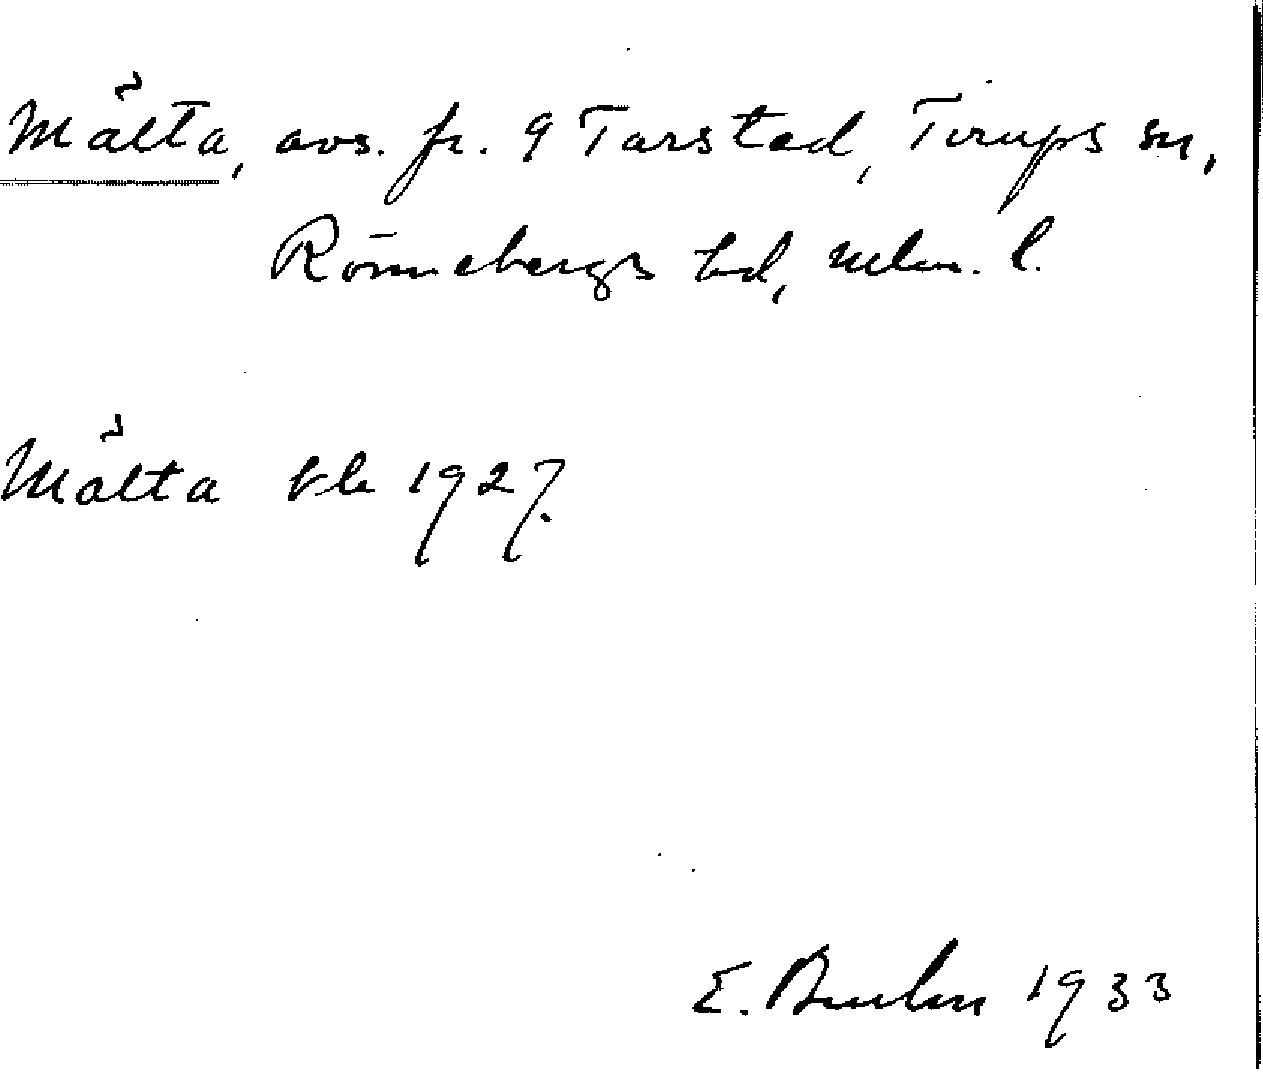 Målta, avs. fr. 9 Tarstad, Tirups sn,
Rönnebergs hd, Mlm. l.
Målta 1927.
E. 1933